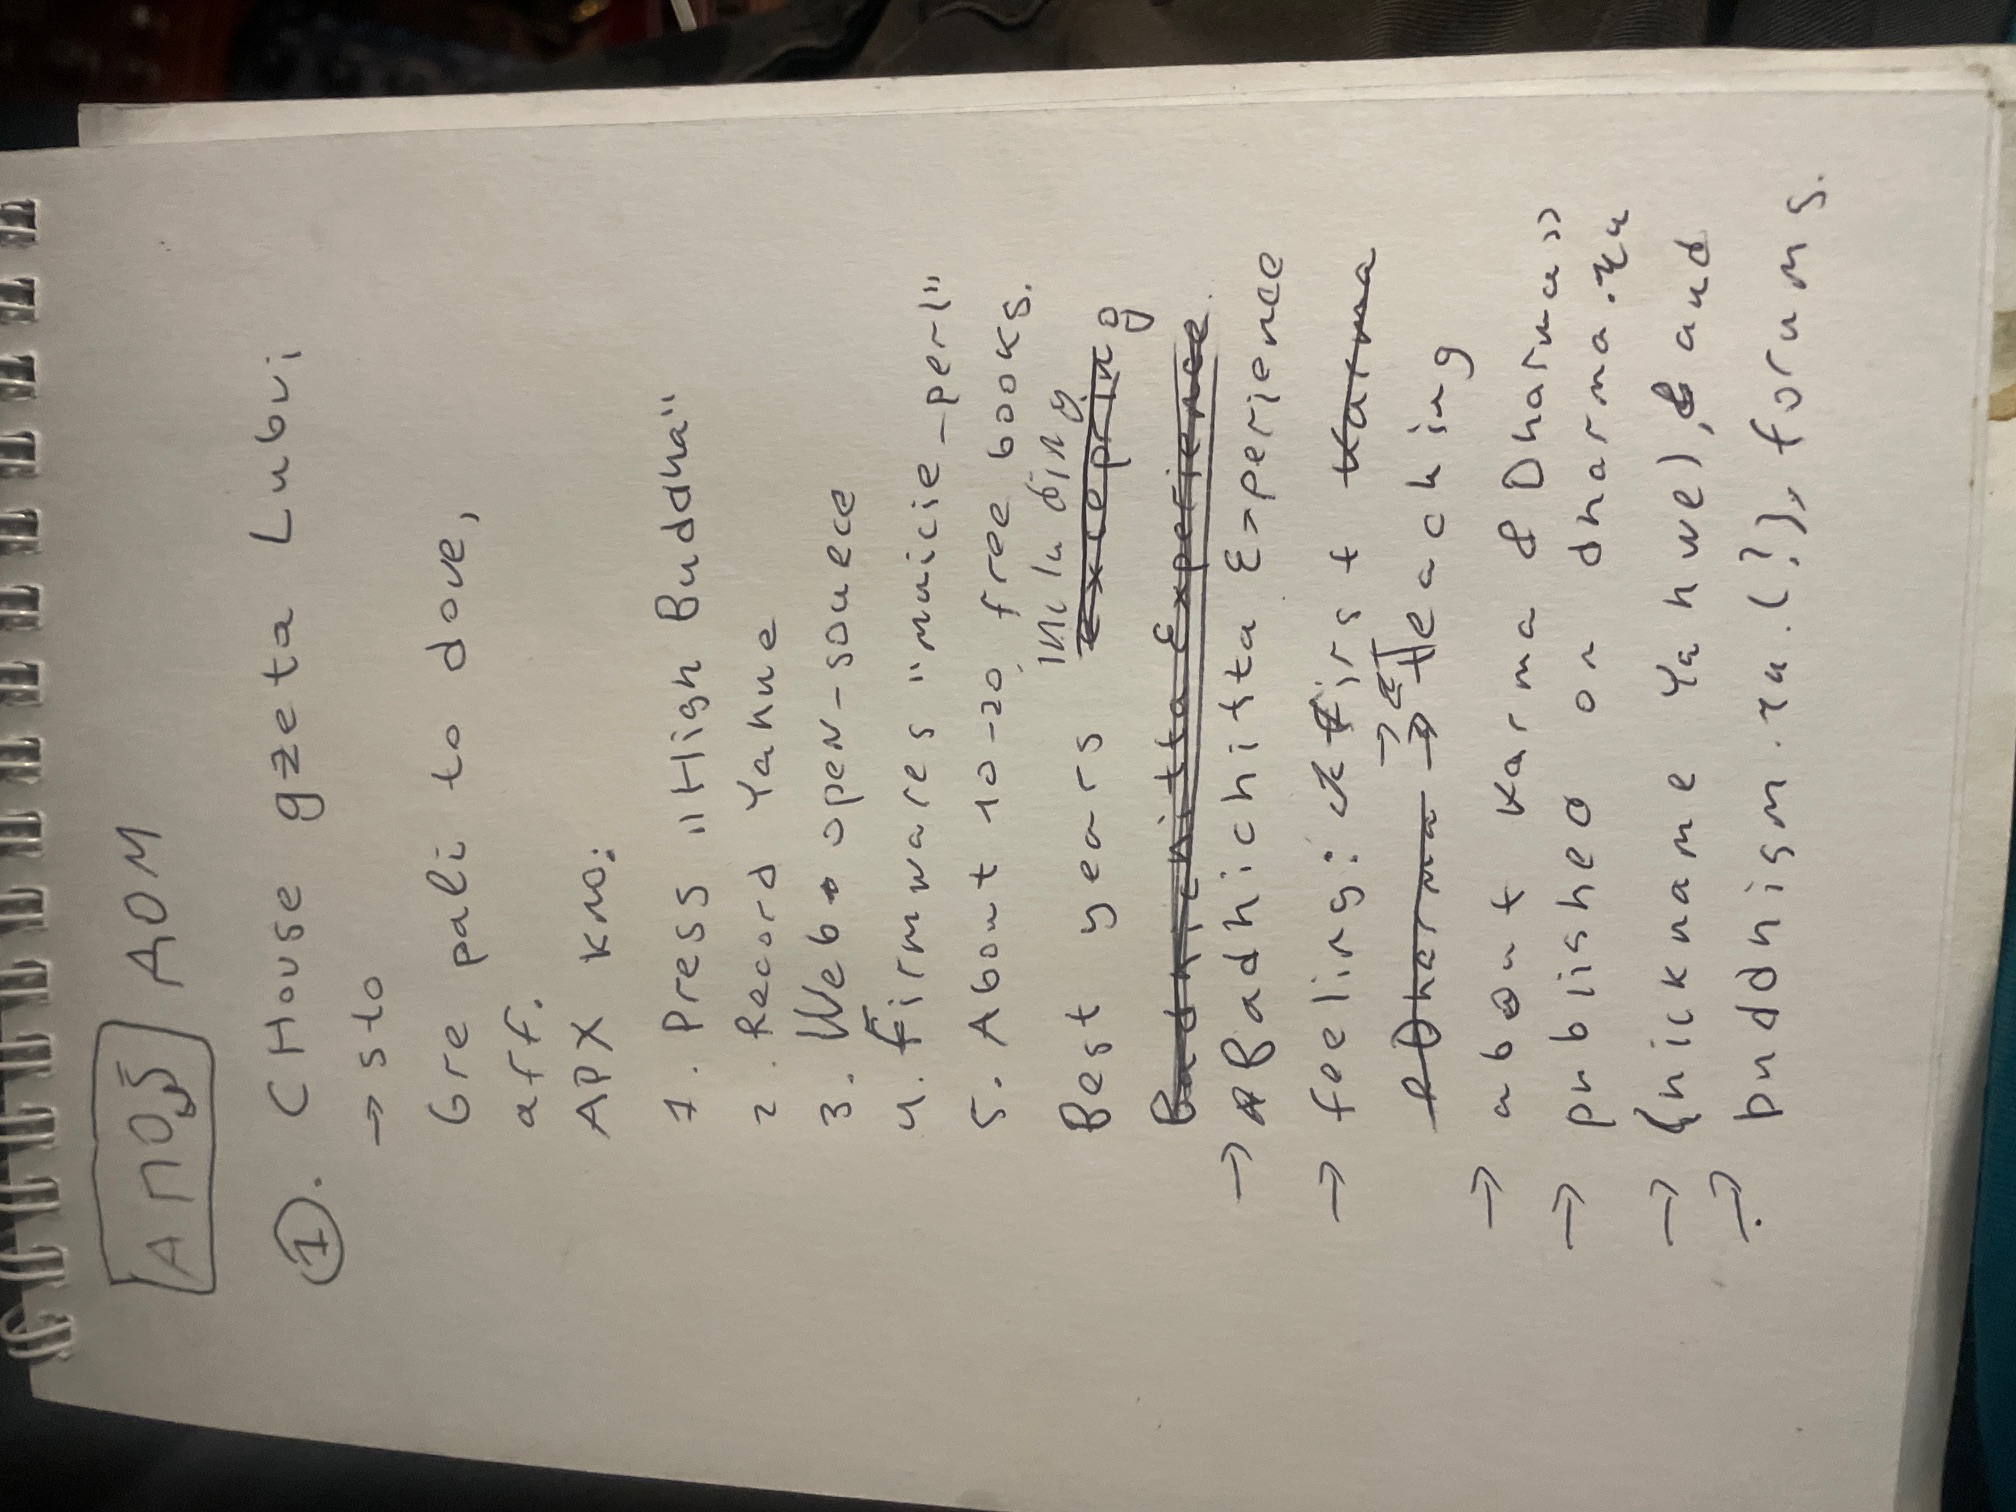 ДОМ
1. CHouse gzeta Lubvi
→ sto
Gre pali to dove,
aff.
APX KNO:
1. Press „High Buddha"
2. Record Yahwe
3. Web open-souece
4. Firmwares "muicie_perl"
5. About 10-20 free books.
including
Best years excepring
Badhichitta Experience.
→ Badhichitta Experience
→ feeling: first Karma
& Dharma → Teaching
→ about Karma & Dharma»
→ published on dharma.ru
→ (nickname Yahwe), and
→ buddhism.ru.(?), forums.